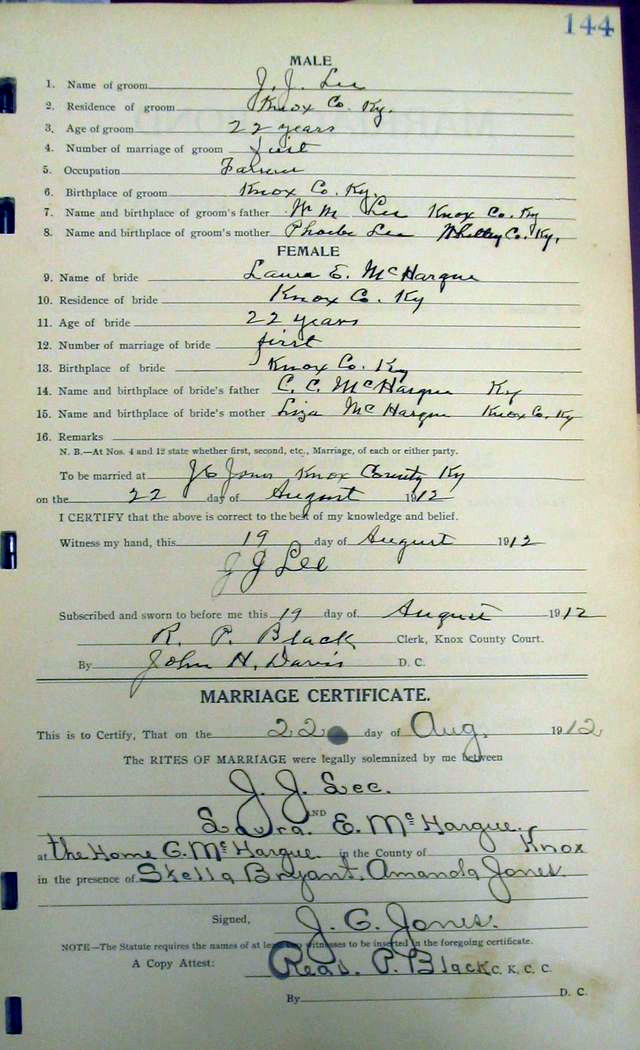 144
MALE
1. Name of groom J. J. Lee
2. Residence of groom Knox Co. Ky.
3. Age of groom 22 years
4. Number of marriage of groom first
5. Occupation Farmer
6. Birthplace of groom Knox Co. Ky.
7. Name and birthplace of groom's father Wm Lee Knox Co. Ky
8. Name and birthplace of groom's mother Phoebe Lee Whitley Co. Ky.
FEMALE
9. Name of bride Laura E. McHargue
10. Residence of bride Knox Co. Ky
11. Age of bride 22 years
12. Number of marriage of bride first
13. Birthplace of bride Knox Co. Ky
14. Name and birthplace of bride's father C. C. McHargue Ky
15. Name and birthplace of bride's mother Liza McHargue Knox Co. Ky
16. Remarks
N. B.—At Nos. 4 and 12 state whether first, second, etc., Marriage, of each or either party.
To be married at Jones Knox County Ky
on the 22 day of August 1912
I CERTIFY that the above is correct to the best of my knowledge and belief.
Witness my hand, this 19 day of August 1912
J J Lee
Subscribed and sworn to before me this 19 day of August 1912
R. P. Black Clerk, Knox County Court.
By John H. Davis D. C.
MARRIAGE CERTIFICATE.
This is to Certify, That on the 22 day of Aug. 1912
The RITES OF MARRIAGE were legally solemnized by me between
J. J. Lee.
AND
Laura. E. McHargue.
at the Home G. McHargue. in the County of Knox
in the presence of Skella Bryant. Amanda Jones.
Signed, J. G. Jones.
NOTE—The Statute requires the names of at least two witnesses to be inserted in the foregoing certificate.
A Copy Attest: Read. P. Black C. K. C. C.
By D. C.